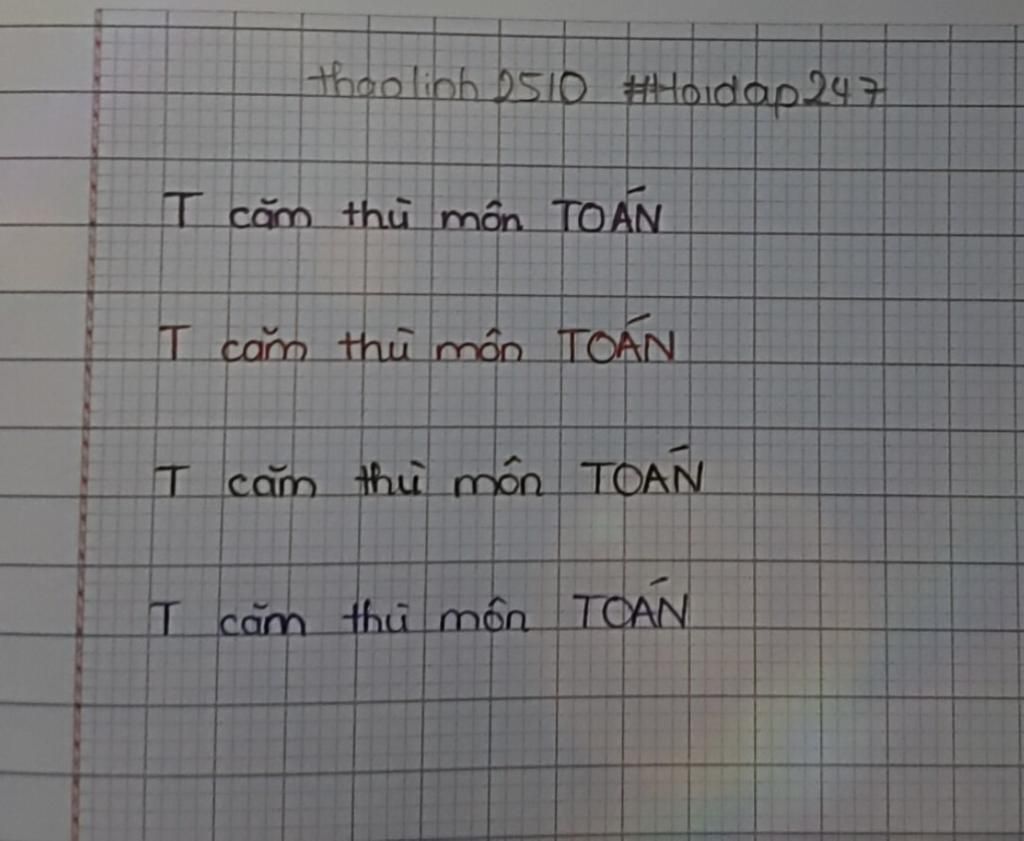 thaolinh2510 #Hoidap247
T căm thù môn TOÁN
T căm thù môn TOÁN
T căm thù môn TOÁN
T căm thù môn TOÁN